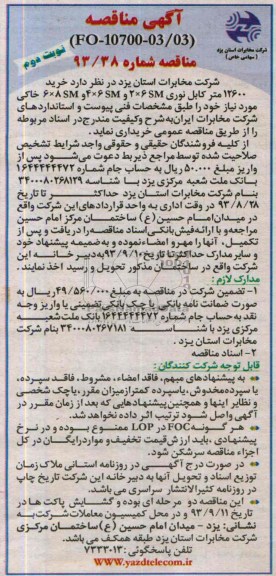 آگهی مناقصه
(FO-10700-03/03)
مناقصه شماره ۹۳/۳۸
نوبت دوم
شرکت مخابرات استان یزد
(سهامی خاص)
شرکت مخابرات استان یزد در نظر دارد خرید
۱۲۶۰۰ متر کابل نوری ۲×۶ SM و ۴×۶ SM و ۶×۸ SM خاکی
مورد نیاز خود را طبق مشخصات فنی پیوست و استانداردهای
شرکت مخابرات ایران به شرح وکیفیت مندرج در اسناد مربوطه
را از طریق مناقصه عمومی خریداری نماید.
از کلیه فروشندگان حقیقی و حقوقی واجد شرایط تشخیص
صلاحیت شده توسط مراجع ذیربط دعوت می‌شود پس از
واریز مبلغ ۵۰.۰۰۰ ریال به حساب جام شماره ۱۶۴۴۴۴۴۷۲
بانک ملت شعبه مرکزی یزد با شناسه ۳۴۰۰۰۸۰۲۶۸۱۲۹
بنام شرکت مخابرات استان یزد حداکثر تا تاریخ
۹۳/۸/۲۸ در وقت اداری به واحد قراردادهای این شرکت واقع
در میدان امام حسین (ع) ساختمان مرکز امام حسین
مراجعه و با ارائه فیش بانکی اسناد مناقصه را دریافت و پس از
تکمیل، آنها را مهر و امضاء نموده و به ضمیمه پیشنهاد خود
و سایر مدارک حداکثر تا تاریخ ۹۳/۹/۱۰ به دبیرخانه این
شرکت واقع در ساختمان مذکور تحویل و رسید اخذ نمایند.
مدارک لازم :
۱- تضمین شرکت در مناقصه به مبلغ ۴۹/۵۶۰/۰۰۰ ریال به
صورت ضمانت نامه بانکی یا چک بانکی تضمینی یا واریز وجه
نقد به حساب جام شماره ۱۶۴۴۴۴۴۷۲ بانک ملت شعبه
مرکزی یزد با شناسه ۳۴۰۰۰۸۰۲۶۷۱۸۱ بنام شرکت
مخابرات استان یزد .
۲- اسناد مناقصه
قابل توجه شرکت کنندگان :
به پیشنهادهای مبهم، فاقد امضاء، مشروط، فاقد سپرده،
یا سپرده مخدوش، یاسپرده کمتر از میزان مقرر، یا چک شخصی
و نظایر اینها و همچنین پیشنهادهایی که بعد از زمان مقرر در
آگهی واصل شود ترتیب اثر داده نخواهد شد.
هر گونه FOC در LOP ممنوع بوده و در نرخ
پیشنهادی، باید ارزش قیمت تخفیف و موارد رایگان در کل
اجزاء مناقصه سرشکن شود.
در صورت درج آگهی در روزنامه استانی ملاک زمان
توزیع اسناد و تحویل آنها به دبیر خانه این شرکت تاریخ چاپ
در روزنامه کثیرالانتشار سراسری می باشد.
این مناقصه دو مرحله ای بوده و گشایش پاکت ها در
تاریخ ۹۳/۹/۱۱ و در محل کمیسیون معاملات شرکت به
نشانی: یزد - میدان امام حسین (ع) ساختمان مرکزی
شرکت مخابرات استان یزد طبقه همکف می باشد.
تلفن پاسخگوئی: ۷۳۳۳۰۱۳
www.yazdtelecom.ir